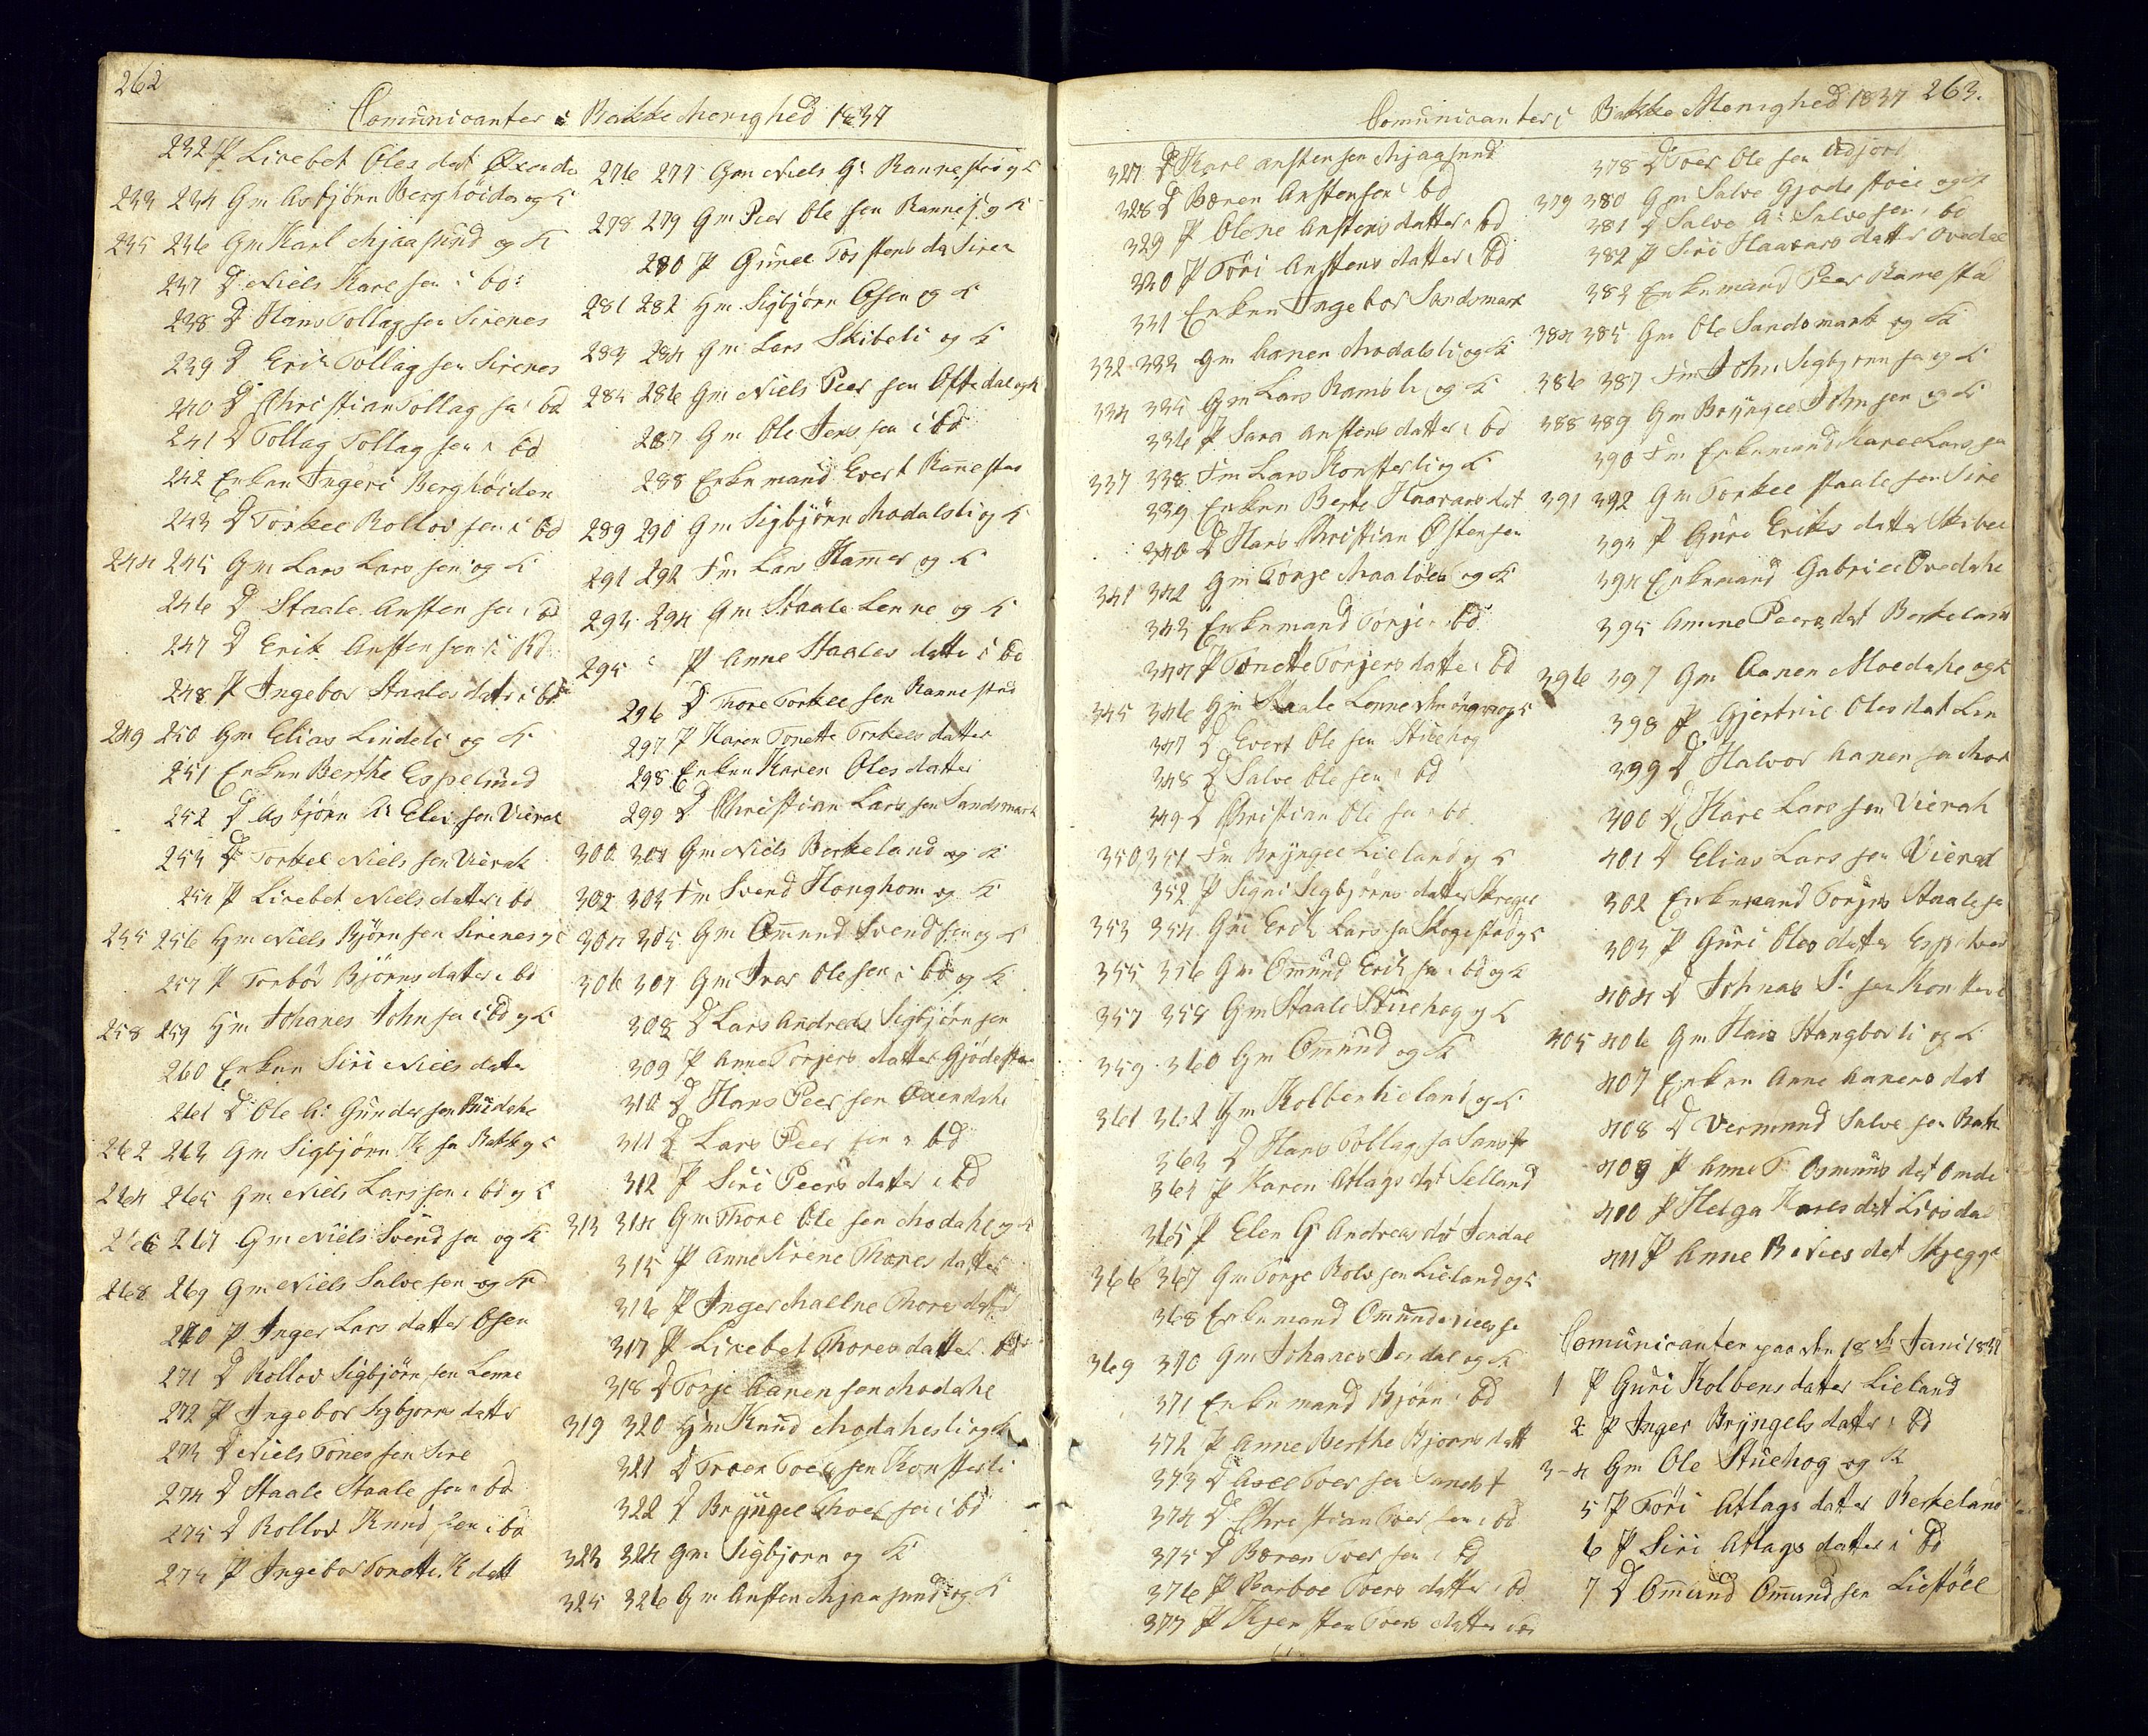 262
Comunicanter i Bakke Menighed 1837
232 P Lisebet Oles dat
233 234 Gm Asbjørn Berghöiden og K
235 236 Gm Karl Mjaasund og K
237 D Niels Karl sen i bd
238 D Hans Tollag sen Sirenes
239 D Erik Tollag sen Sirenes
240 D Christian Tollag sen i bd
241 D Tollag Tollag sen i bd
242 Enken Ingeri Berghöiden
243 D Torkel Rollov sen i bd
244 245 Gm Lars Lars sen og K
246 D Staale Ansten sen i bd
247 D Erik Ansten sen i Bd
248 P Ingebor Staales datr i bd
249 250 Gm Elias Lindeli og K
251 Enken Berthe Espelund
252 D Asbjörn A: Elis sen Vierak
253 D Torkel Niels sen Vierak
254 P Lisebet Niels datter i bd
255 256 Hm Niels Björn sen Sirenes og K
257 P Torbör Björns datter i bd
258 259 Hm Johanes John sen i bd og K
260 Enken Siri Niels datter
261 D Ole A: Gunder sen
262 263 Gm Sigbjörn sen Bakk og K
264 265 Gm Niels Lars sen i bd og K
266 267 Gm Niels Svend sen og K
268 269 Gm Niels Salve sen og K
270 P Inger Lars datter Osen
271 D Rollov Sigbjörn sen Lenne
272 P Ingebor Sigbjörns datter
273 D Niels Tones sen Sire
274 D Staale Staale sen i bd
275 D Rollov Knud sen i bd
274 P Ingebor Tonette K datt
276 277 Gm Niels G: Rannestad og K
278 279 Gm Peer Ole sen Rannes: og K
280 P Gunel Torstens da Sirea
281 282 Hm Sigbjörn Osen og K
283 284 Gm Lars Skibeli og K
285 286 Gm Niels Peer sen Oftedal og K
287 Gm Ole Jens sen i bd
288 Enkemand Evert Rannestad
289 290 Gm Sigbjörn Modalsli og K
291 292 Fm Lars Hamer og K
293 294 Gm Staale Lenne og K
295 P Anne Staales datte i bd
296 D Thore Torkel sen Rannestad
297 P Karen Tonette Torkels datter
298 Enken Karen Oles datter
299 D Christian Lars sen Sandsmark
300 301 Gm Niels Berkeland og K
302 303 Fm Svend Honghom og K
304 305 Gm Omund Svend sen og K
306 307 Gm Ivar Ole sen i bd og K
308 D Lars Andreas Sigbjörn sen
309 P Anne Torjers datter Gjödestøl
310 D Hans Peer sen Øxendahl
311 D Lars Peer sen i bd
312 P Siri Peers datter i bd
313 314 Gm Thore Ole sen Modahl og K
315 P Anne Sirene Thores datter
316 P Inger Mallne Thores datr
317 P Lisebet Thores datter bd
318 D Torje Aanen sen Modahl
319 320 Hm Knud Modahlsli og K
321 D Troen Toer sen Konsterli
322 D Bryngel Thoer sen i bd
323 324 Gm Sigbjorn og K
325 326 Gm Ansten Mjaasund og K
Comunicanter i Bakke Menighed 1837 263.
327 D Karl Ansten sen Mjaasund
328 D Bæren Ansten sen i bd
329 P Olene Anstens datter i bd
330 P Töri Anstens datter i bd
331 Enken Ingebor Sandsmark
332 333 Gm Aanen Modalsli og K
334 335 Gm Lars Ramsli og K
336 P Sara Anstens datter i bd
337 338 Fm Lars Konsterli og K
339 Enken Berte Haavars dat
340 D Hans Christian Østensen
341 342 Gm Tonje og K
343 Enkemand Torje i bd
344 P Tonette Torjers datte i bd
345 346 Gm Staale Lenne og K
347 D Evert Ole sen Stuehog
348 D Salve Ole sen i bd
349 D Christian Ole sen i bd
350 351 Fm Bryngel Lieland og K
352 P Signi Sigbjørns datter Skregge
353 354 Gm Erik Lars sen Skogestad og K
355 356 Gm Omund Erik sen i bd og K
357 358 Gm Staale Stuehog og K
359 360 Gm Omund og K
361 362 Gm Kolben Lieland og K
363 D Hans Tollag sen
364 P Karen Atlags dat Selland
365 P Elen G Andreas dr Jerdal
366 367 Gm Torje Rolv sen Lieland og K
368 Enkemand Omund Niels se
369 370 Gm Johanes Jerdal og K
371 Enkemand Bjørn i bd
372 P Anne Berthe Bjorns datt
373 D Axel Toer sen
374 D Christian Toer sen i bd
375 D Bæren Toer sen i bd
376 P Barboe Toers datter i bd
377 P Kjersten Toers datter i bd
378 D Toer Ole sen
379 380 Gm Salve Gjødestøl og K
381 D Salve A: Salve sen i bd
382 P Siri Haavars datter Ovedal
383 Enkemand Peer Ranestad
384 385 Gm Ole Sandsmark og K
386 387 Fm John Sigbjørn sen og K
388 389 Gm Bryngel John sen og K
390 Fm Enkemand Karl Lars sen
391 392 Gm Torkel Staale sen Sire
393 P Guro Eriks datter Skibel
394 Enkemand Gabriel Ovedahl
395 Amme Peers dat Berkeland
396 397 Gm Aanen Moedahl og K
398 P Gjertrue Oles dat Lin
399 D Halvor Aanen sen Mor
300 D Karl Lars sen Vierak
401 D Elias Lars sen Vierak
302 Enkemand Torjus Staale se
303 P Guri Oles datter
404 D Johnas S: sen Konsterli
405 406 Gm Hans Stangborli og K
407 Enken Anne Aanens dat
408 D Vermund Salve sen Bakk
409 P Anne T: Osmunds dat Omdal
400 P Helga Karls dat Lirsdal
411 P Anne B Niels dat Skregge
Comunicanter paa den 18de Juni 1837
1 P Guri Kolbens datter Lieland
2 P Inger Bryngels datter i bd
3-4 Gm Ole Stuehog og K
5 P Töri Atlags datter Berkeland
6 P Siri Atlags datter i bd
7 D Omund Omund sen Liestöel